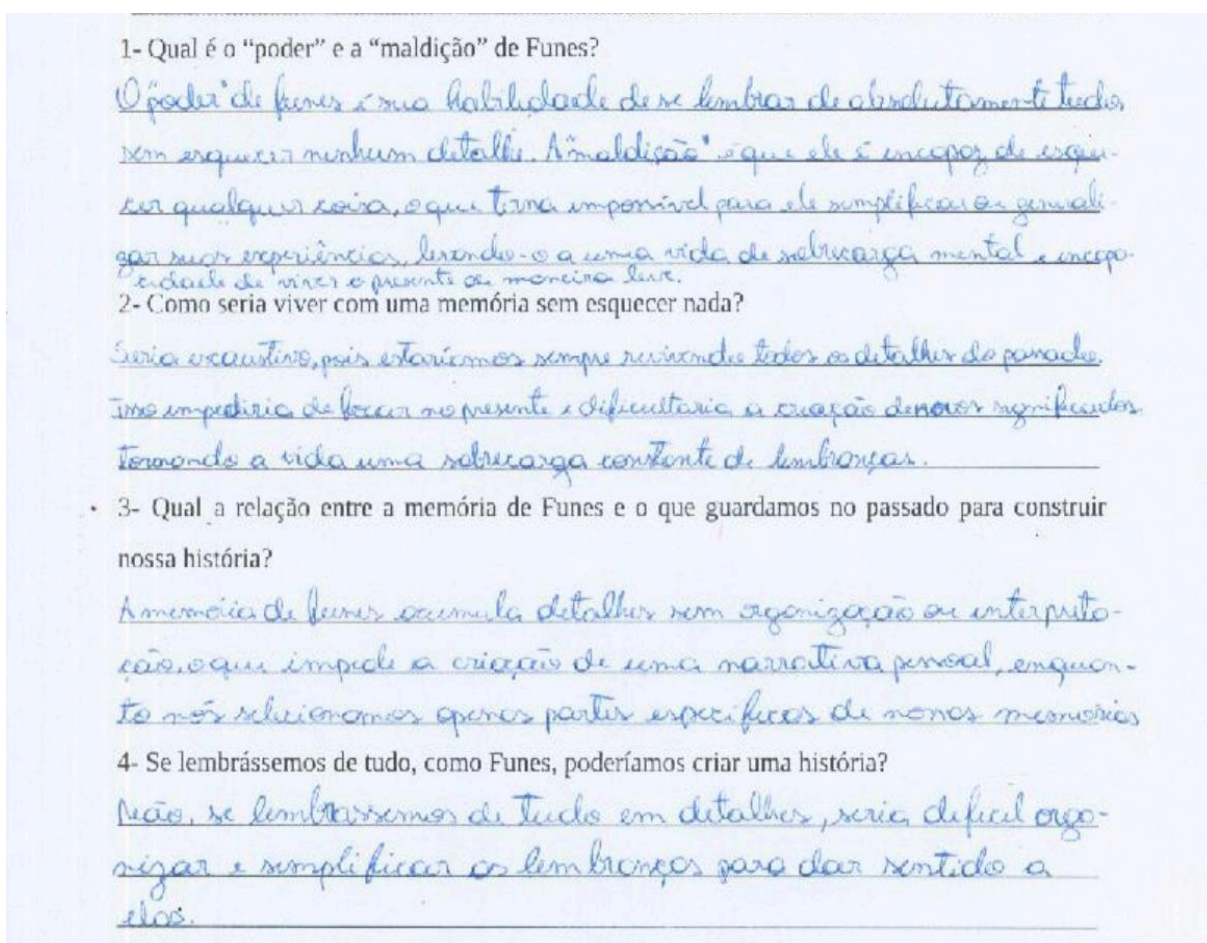 1- Qual é o “poder” e a “maldição” de Funes?
O "poder" de funes é sua habilidade de se lembrar de absolutamente tudo,
sem esquecer nenhum detalhe. A "maldição" é que ele é incapaz de esque-
cer qualquer coisa, o que torna impossível para ele simplificar ou generali-
zar suas experiências, levando-o a uma vida de sobrecarga mental e incapa-
cidade de viver o presente de maneira leve.
2- Como seria viver com uma memória sem esquecer nada?
Seria exaustivo, pois estaríamos sempre revivendo todos os detalhes do passado.
Isso impediria de focar no presente e dificultaria a criação de novos significados,
tornando a vida uma sobrecarga constante de lembranças.
3- Qual a relação entre a memória de Funes e o que guardamos no passado para construir
nossa história?
A memória de funes acumula detalhes sem organização ou interpreta-
ção, o que impede a criação de uma narrativa pessoal, enquan-
to nós selecionamos apenas partes específicas de nossas memorias
4- Se lembrássemos de tudo, como Funes, poderíamos criar uma história?
Não, se lembrassemos de tudo em detalhes, seria dificil orga-
nizar e simplificar as lembranças para dar sentido a
elas.